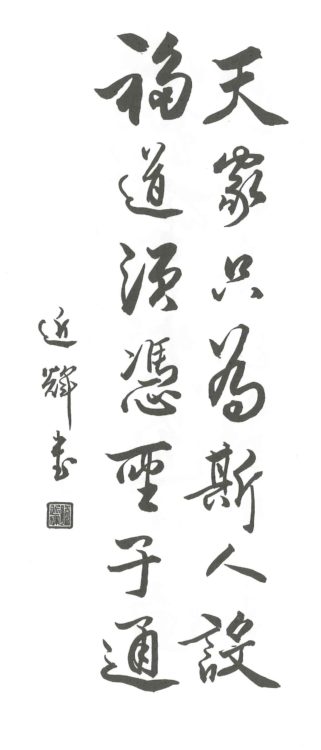 天家只為斯人設
福道須憑聖子通
近輝書